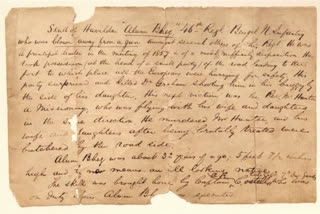 Skull of Havildar "Alum Bheg" 46th Regt Bengal N. Infantry
who was blown away from a gun, amongst several others of his Regt. He was
a principal leader in the mutiny of 1857 & of a most ruffianly disposition. He
took possession (at the head of a small party) of the road leading to the
fort, to which place all the Europeans were hurrying for safety. His
party surprised and killed Dr. Graham shooting him in his buggy by
the side of his daughter. His next victim was the Rev. Mr. Hunter
a Missionary, who was flying with his wife and daughters
in the same direction. He murdered Mr Hunter, and his
wife and daughters after being brutally treated were
butchered by the road side.
Alum Bheg was about 32 years of age, 5 feet 7 ½ inches
high and by no means an ill looking native.
The skull was brought home by Captain Costello who was
on duty when Alum Bheg was executed.